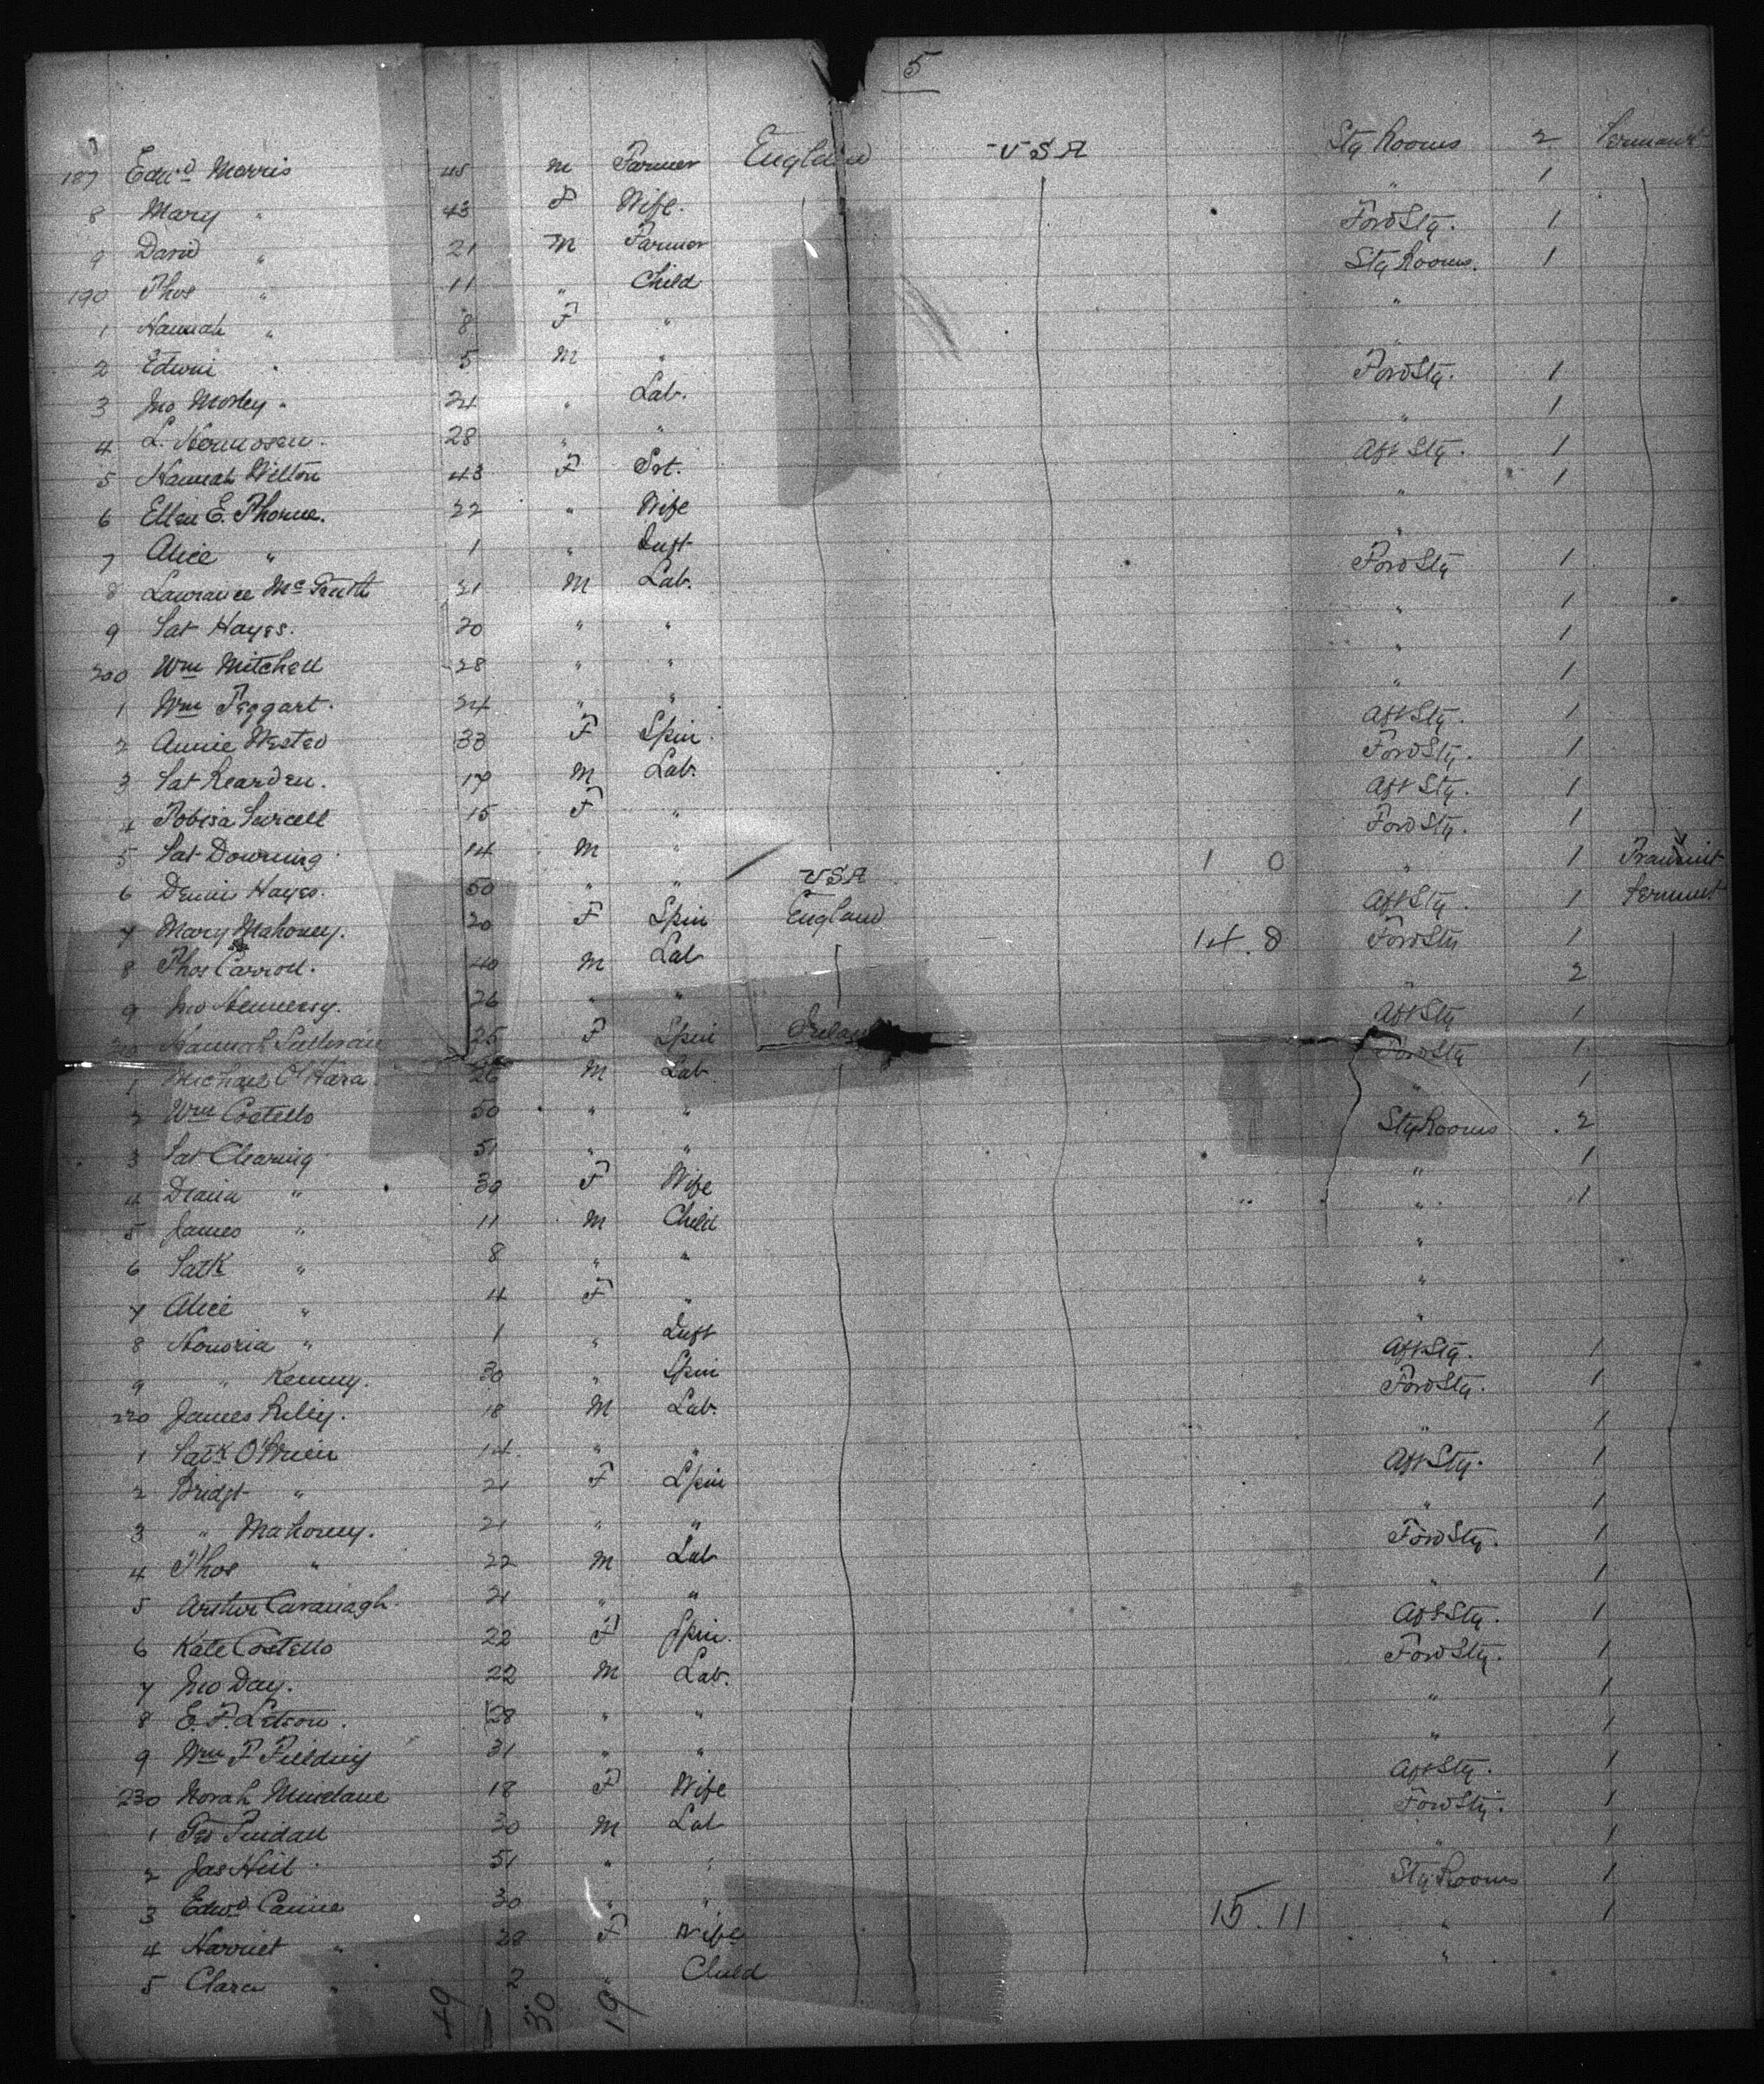 5
187 Edwd Morris 45 M Farmer England U S A Stg Rooms 2 Permant
8 Mary " 43 F Wife. " 1
9 David " 21 M Farmer Forw Stg. 1
190 Thos " 11 " Child Stg Rooms. 1
1 Hannah " 8 F " "
2 Edwin " 5 M " "
3 Jno Morley " 24 " Lab. Forw Stg. 1
4 L. 28 " " " 1
5 Hannah Wilton 43 F Aft Stg. 1
6 Ellen E. Thorne. 22 " Wife " 1
7 Alice " 1 " Inft "
8 Lawrance Mc 21 M Lab. Forw Stg 1
9 Pat Hayes. 20 " " " 1
200 Wm Mitchell 28 " " " 1
1 Wm Teggart. 24 " " " 1
2 Annie 33 F Spin. Aft Stg. 1
3 Pat Rearden. 19 M Lab. Forw Stg. 1
4 Purcell 15 F " Aft Stg. 1
5 Pat Downing 14 M " Forw Stg. 1
6 Dennis Hayes. 50 " " USA 1 0 " 1 Transint
7 Mary Mahoney. 20 F Spin England Aft Stg. 1 Permnt
8 Thos Carroll. 40 M Lab 14. 8 Forw Stg 1
9 Jno Hennessy. 26 " " " 2
210 Hannah Sullivan 25 F Spin Ireland Aft Stg 1
1 Michael O'Hara 26 M Lab Forw Stg 1
2 Wm Costello 50 " " " 1
3 Pat Clearing 51 " " Stg Rooms 2
4 39 F Wife " 1
5 James " 11 M Child " 1
6 Patk " 8 " " "
7 Alice " 4 F " "
8 Honoria " 1 " Inft "
9 " Kenny. 30 " Spin Aft Stg. 1
220 James Riley. 18 M Lab. Forw Stg. 1
1 Patk O'Brien 14 " " " 1
2 Bridgt " 21 F Spin Aft Stg. 1
3 " Mahoney. 21 " " " 1
4 Thos " 22 M Lab Forw Stg. 1
5 Arthur Cavanagh. 21 " " " 1
6 Kate Costello 22 F Spin. Aft Stg. 1
7 Jno Day. 22 M Lab. Forw Stg. 1
8 E. F. 28 " " " 1
9 Wm F Fielding 31 " " " 1
230 Norah 18 F Wife Aft Stg. 1
1 Geo 30 M Lab Forw Stg. 1
2 Jas 51 " " " 1
3 Edwd Canne 30 " " Stg Rooms 1
4 Harriet " 28 F Wife 15. 11 " 1
5 Clara " 2 " Child "
49 30 19